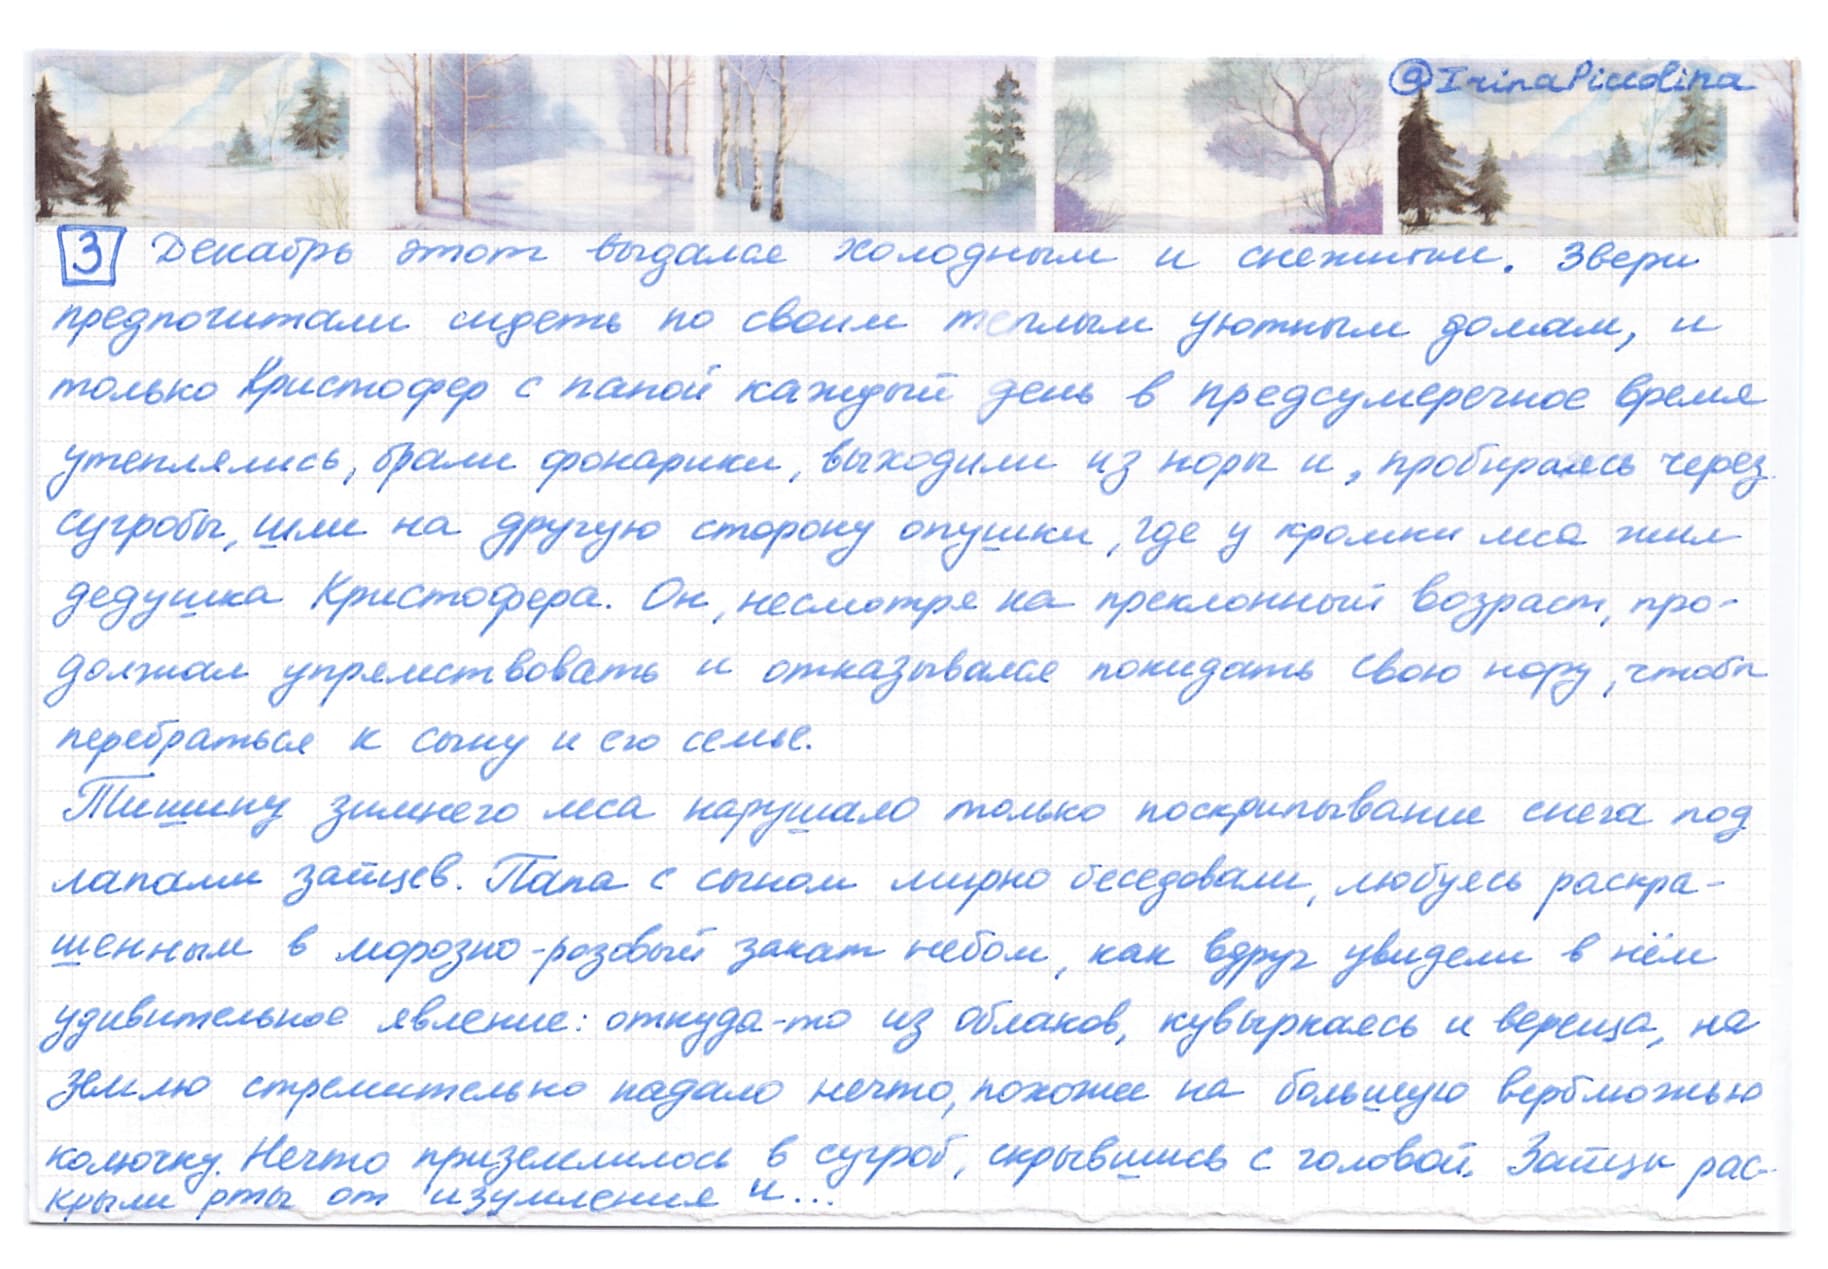 @IrinaPiccolina
3 Декабрь этот выдался холодным и снежным. Звери
предпочитали сидеть по своим тёплым уютным домам, и
только Кристофер с папой каждый день в предсумеречное время
утеплялись, брали фонарики, выходили из норы и, пробираясь через
сугробы, шли на другую сторону опушки, где у кромки леса жил
дедушка Кристофера. Он, несмотря на преклонный возраст, про-
должал упрямствовать и отказывался покидать свою нору, чтобы
перебраться к сыну и его семье.
Тишину зимнего леса нарушало только поскрипывание снега под
лапами зайцев. Папа с сыном мирно беседовали, любуясь раскра-
шенным в морозно-розовый закат небом, как вдруг увидели в нём
удивительное явление: откуда-то из облаков, кувыркаясь и вереща, на
землю стремительно падало нечто, похожее на большую верблюжью
колючку. Нечто приземлилось в сугроб, скрывшись с головой. Зайцы рас-
крыли рты от изумления и...